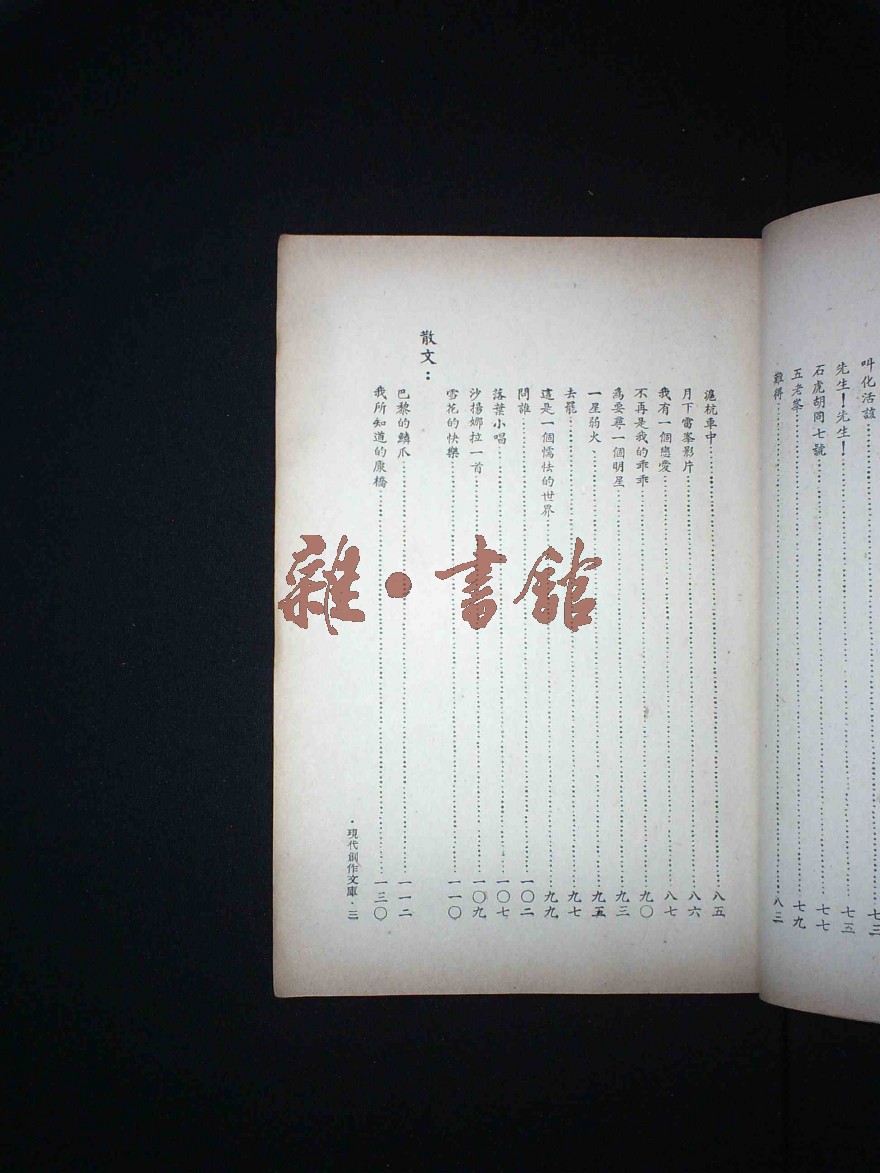 叫化活該……七三
先生！先生！……七五
石虎胡同七號……七七
五老峯……七九
難得……八二
滬杭車中……八五
月下雷峯影片……八六
我有一個戀愛……八七
不再是我的乖乖……九〇
為要尋一個明星……九三
一星弱火……九五
去罷……九七
這是一個懦怯的世界……九九
問誰……一〇二
落葉小唱……一〇七
沙揚娜拉一首……一〇九
雪花的快樂……一一〇
散文：
巴黎的鱗爪……一一二
我所知道的康橋……一三〇
·現代創作文庫·三
雜·書館